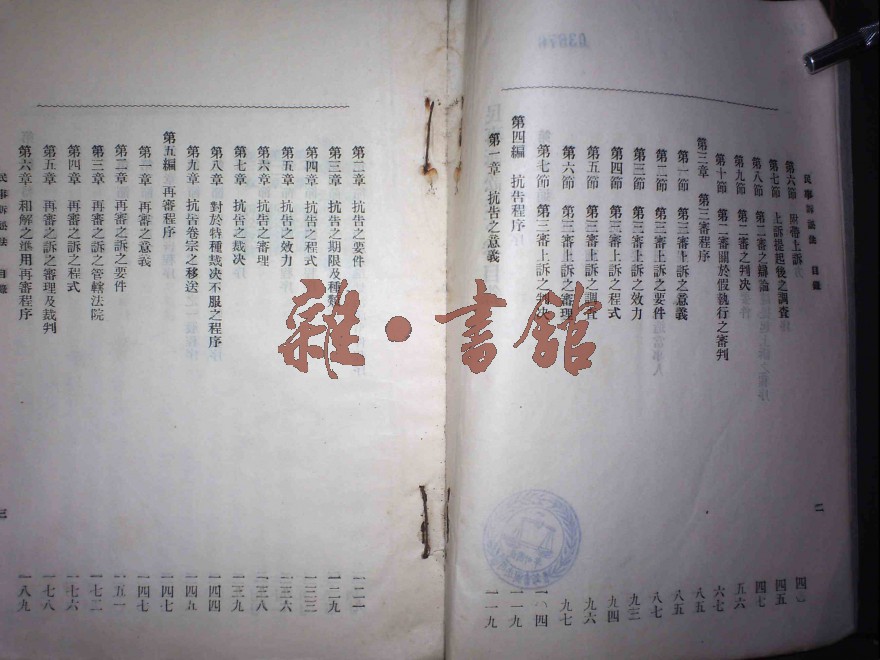 民事訴訟法 目錄 二
第六節 附帶上訴
第七節 上訴提起後之調查 四五
第八節 第二審之辯論 四七
第九節 第二審之判決 五六
第十節 第二審關於假執行之審判 六七
第三章 第三審程序 八五
第一節 第三審上訴之意義 八五
第二節 第三審上訴之要件 八七
第三節 第三審上訴之效力 九三
第四節 第三審上訴之程式 九四
第五節 第三審上訴之調查 九六
第六節 第三審上訴之審理 九七
第七節 第三審上訴之判決
第四編 抗告程序 一一九
第一章 抗告之意義 一一九
第二章 抗告之要件 一二一
第三章 抗告之期限及種類 一二九
第四章 抗告之程式 一三三
第五章 抗告之效力 一三六
第六章 抗告之審理 一三八
第七章 抗告之裁决 一三九
第八章 對於特種裁决不服之程序 一四四
第九章 抗告卷宗之移送 一四五
第五編 再審程序 一四七
第一章 再審之意義 一四七
第二章 再審之訴之要件 一五一
第三章 再審之訴之管轄法院 一七二
第四章 再審之訴之程式 一七六
第五章 再審之訴之審理及裁判 一七八
第六章 和解之準用再審程序 一八九
民事訴訟法 目錄 三
雜·書館